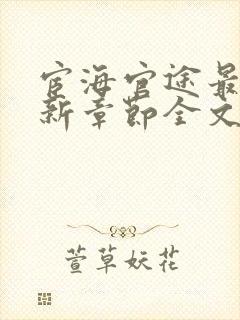 宦海官途最
新章节全文
萱草妖花